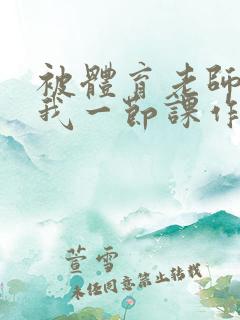 被體育老師
我一節課作
萱雪
未经同意禁止转载